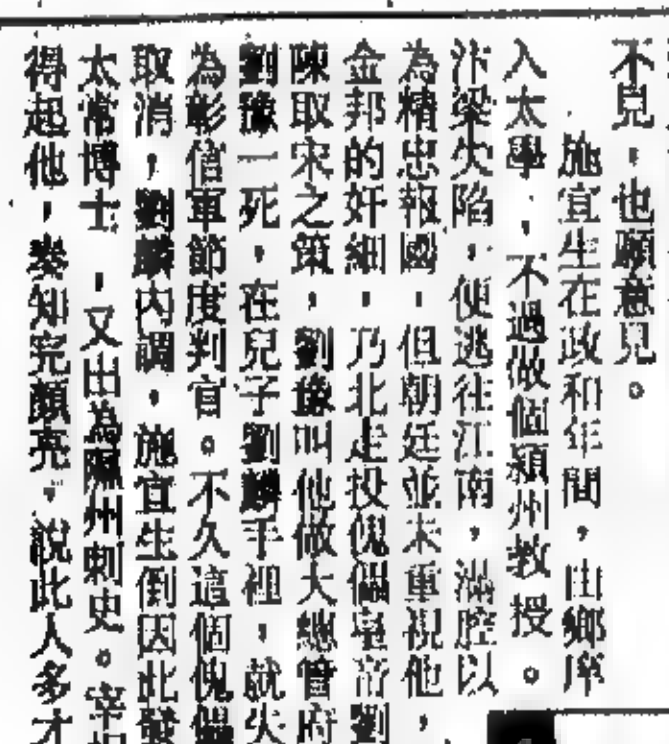 不見，也願意見。
施宜生在政和年間，由鄉庠
入太學，不過做個潁州教授。
汴梁失陷，便逃往江南，滿腔以
為精忠報國，但朝廷並未重視他，
金邦的奸細，乃北走投傀儡皇帝劉
陳取宋之策，劉豫叫他做大總管府
劉豫一死，在兒子劉麟手裡，就失
為彰信軍節度判官。不久這個傀儡
取消，劉麟內調，施宜生倒因此發
太常博士，又出為隰州刺史。宰相
得起他，奏知完顏亮，說此人多才